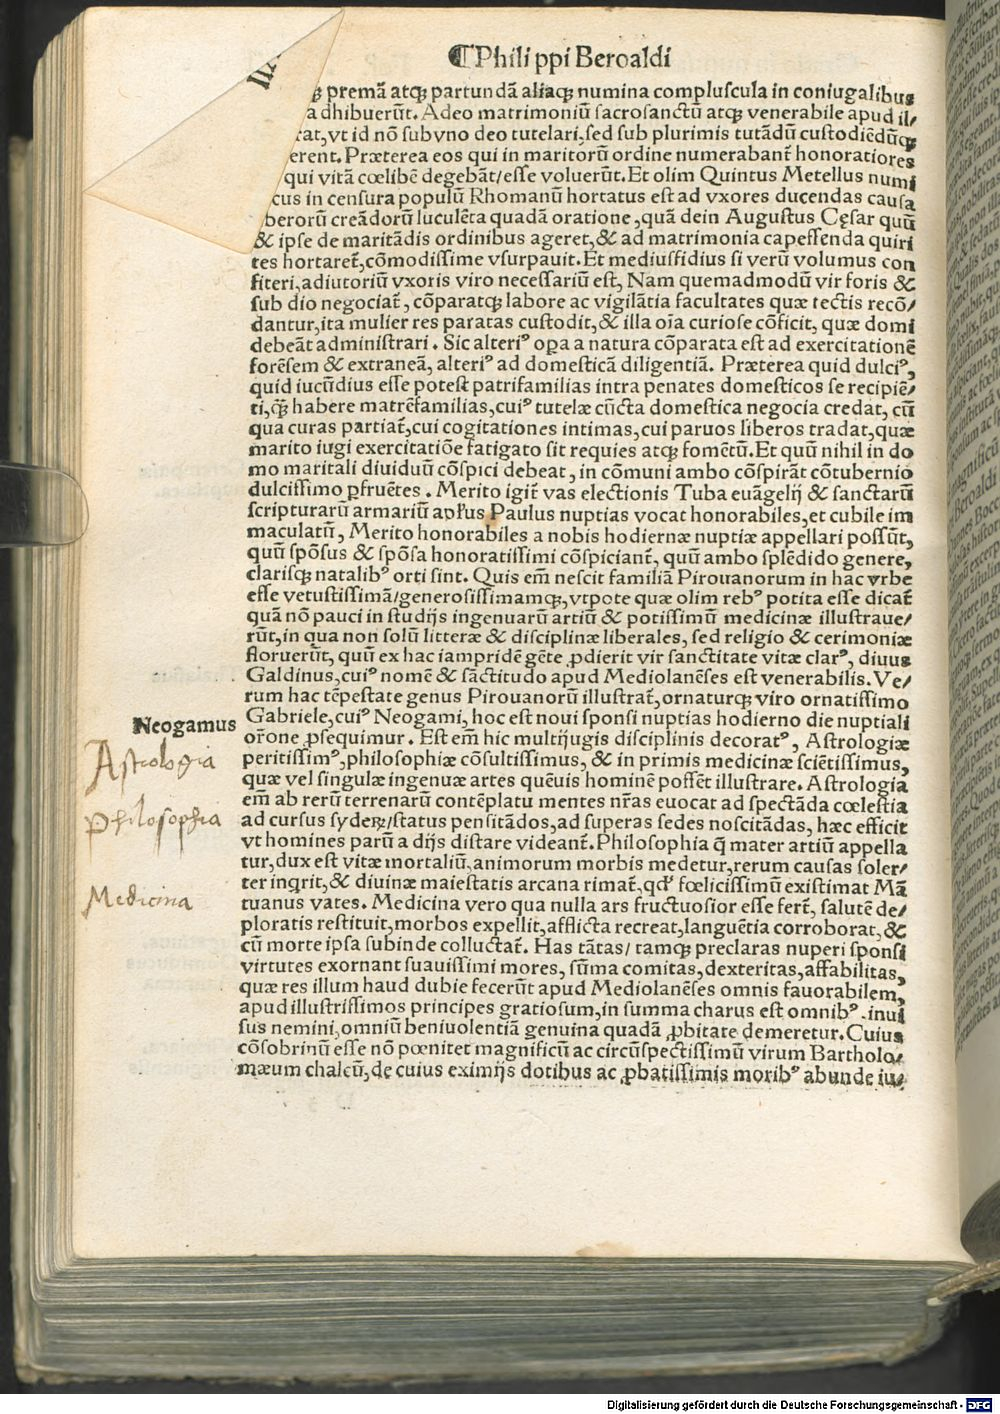 ¶Philippi Beroaldi
premā atqꝫ partundā aliaqꝫ numina compluscula in coniugalibus
adhibuerūt. Adeo matrimoniū sacrosanctū atqꝫ venerabile apud il/
rat, vt id nō subvno deo tutelari, sed sub plurimis tutādū custodiēdūqꝫ
erent. Præterea eos qui in maritorū ordine numerabant̄ honoratiores
qui vitā cœlibē degebāt/esse voluerūt. Et olim Quintus Metellus numi
cus in censura populū Rhomanū hortatus est ad vxores ducendas causa
berorū creādorū luculēta quadā oratione, quā dein Augustus Cęsar quū
& ipse de maritādis ordinibus ageret, & ad matrimonia capessenda quiri
tes hortaret̄, cōmodissime vsurpauit. Et mediusfidius si verū volumus con
fiteri, adiutoriū vxoris viro necessariū est, Nam quemadmodū vir foris &
sub dio negociat̄, cōparatqꝫ labore ac vigilātia facultates quæ tectis recō/
dantur, ita mulier res paratas custodit, & illa oīa curiose cōficit, quæ domi
debeāt administrari. Sic alteriꝰ oꝑa a natura cōparata est ad exercitationē
forēsem & extraneā, alteriꝰ ad domesticā diligentiā. Præterea quid dulciꝰ,
quid iucūdius esse potest patrifamilias intra penates domesticos se recipiē/
ti, q̄ꝫ habere matrēfamilias, cuiꝰ tutelæ cūcta domestica negocia credat, cū
qua curas partiat̄, cui cogitationes intimas, cui paruos liberos tradat, quæ
marito iugi exercitatiōe fatigato sit requies atqꝫ fomētū. Et quū nihil in do
mo maritali diuiduū cōspici debeat, in cōmuni ambo cōspirāt cōtubernio
dulcissimo ꝑfruētes. Merito igit̄ vas electionis Tuba euāgelij & sanctarū
scripturarū armariū apl'us Paulus nuptias vocat honorabiles, et cubile im
maculatū, Merito honorabiles a nobis hodiernæ nuptiæ appellari possūt,
quū spōsus & spōsa honoratissimi cōspiciant̄, quū ambo splēdido genere,
clarisqꝫ natalibꝰ orti sint. Quis em̄ nescit familiā Pirouanorum in hac vrbe
esse vetustissimā/generosissimamqꝫ, vtpote quæ olim rebꝰ potita esse dicat̄
quā nō pauci in studijs ingenuarū artiū & potissimū medicinæ illustraue/
rūt, in qua non solū litteræ & disciplinæ liberales, sed religio & cerimoniæ
floruerūt, quū ex hac iampridē gēte ꝓdierit vir sanctitate vitæ clarꝰ, diuus
Galdinus, cuiꝰ nomē & sāctitudo apud Mediolanēses est venerabilis. Ve/
rum hac tēpestate genus Pirouanorū illustrat̄, ornaturqꝫ viro ornatissimo
Gabriele, cuiꝰ Neogami, hoc est noui sponsi nuptias hodierno die nuptiali
or̄one ꝓsequimur. Est em̄ hic multijugis disciplinis decoratꝰ, Astrologiæ
peritissimꝰ, philosophiæ cōsultissimus, & in primis medicinæ sciētissimus,
quæ vel singulæ ingenuæ artes quēuis hominē possēt illustrare. Astrologia
em̄ ab rerū terrenarū contēplatu mentes nr̄as euocat ad spectāda cœlestia
ad cursus syderꝝ/status pensitādos, ad superas sedes noscitādas, hæc efficit
vt homines parū a dijs distare videant̄. Philosophia q̄ mater artiū appella
tur, dux est vitæ mortaliū, animorum morbis medetur, rerum causas soler/
ter inqrit, & diuinæ maiestatis arcana rimat̄, qd' fœlicissimū existimat Mā
tuanus vates. Medicina vero qua nulla ars fructuosior esse fert̄, salutē de/
ploratis restituit, morbos expellit, afflicta recreat, languētia corroborat, &
cū morte ipsa subinde colluctat̄. Has tātas/ tamqꝫ preclaras nuperi sponsi
virtutes exornant suauissimi mores, sūma comitas, dexteritas, affabilitas,
quæ res illum haud dubie fecerūt apud Mediolanēses omnis fauorabilem,
apud illustrissimos principes gratiosum, in summa charus est omnibꝰ. inui
sus nemini, omniū beniuolentiā genuina quadā ꝓbitate demeretur. Cuius
cōsobrinū esse nō pœnitet magnificū ac circūspectissimū virum Bartholo/
mæum chalcū, de cuius eximijs dotibus ac ꝓbatissimis moribꝰ abunde iu/
Neogamus
Astrologia
Philosophia
Medicina
Digitalisierung gefördert durch die Deutsche Forschungsgemeinschaft - DFG